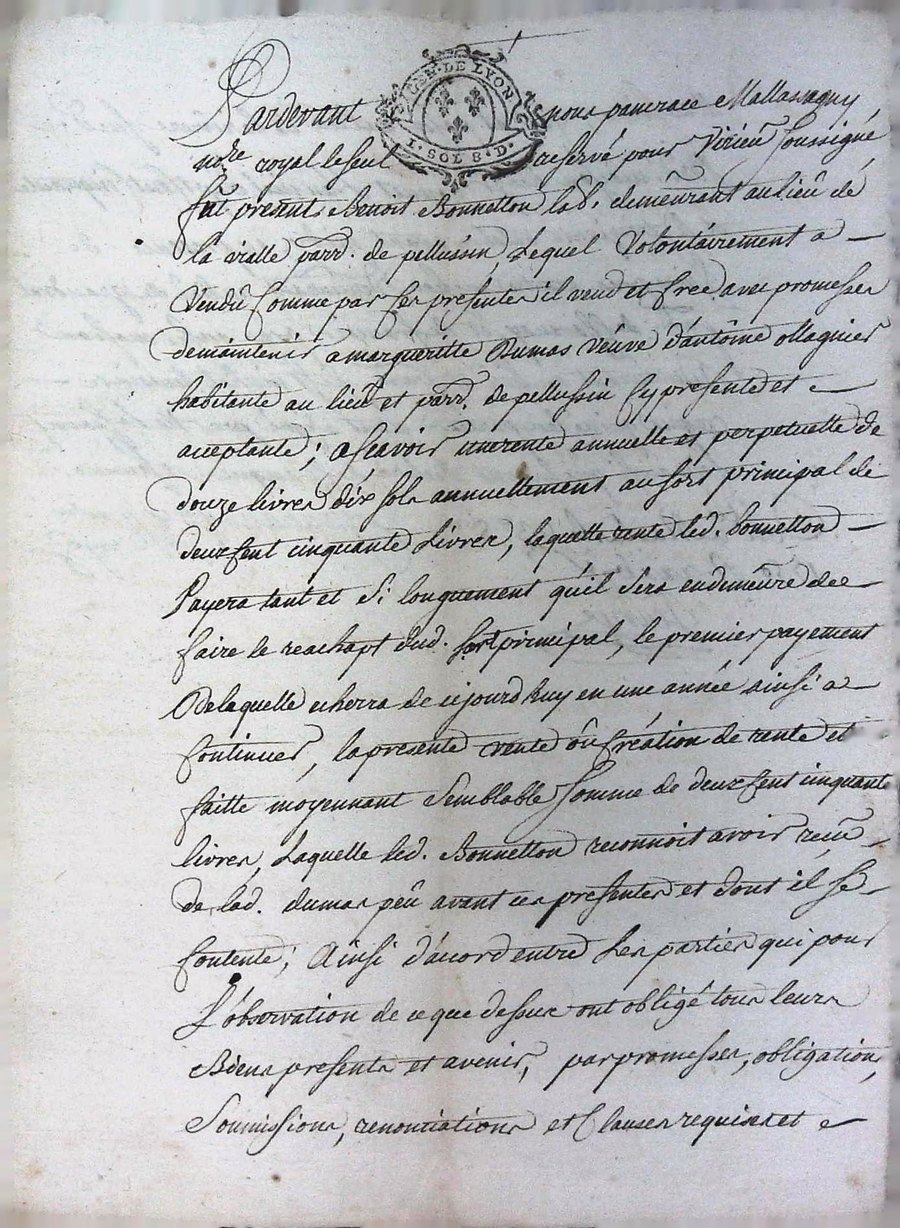 GEN. DE LYON
1. SOL 8. D.
Pardevant nous pancrace Mallassagny
no.re royal le seul reservé pour Virieu soussigné
fut present Benoit Bonnetton lab.r demeûrant au lieû de
la vialle parr. de pellussin Lequel Volontairement a
Vendû Comme par ses presentes il vend et Cree avec promesses
de maintenir a margueritte Dumas veûve d'antôine ollagnier
habitante au lieû et parr. de pellussin Cy presente et
aceptante; ascavoir une rente annuelle et perpetuelle de
douze livres dix sols annuellement au sort principal de
deux cent cinquante Livres, laquelle rente led. bonnetton
Payera tant et Si longuement qu'il sera en demeûre de
faire le reachapt dud. sort principal, le premier payement
De laquelle echerra de cejourd'huy en une année ainsi a
Continuer, la presente vente ôu Création de rente et
faitte moyennant Semblable Somme de deux cent cinquante
livres, Laquelle led. Bonnetton reconnoit avoir recû
de lad. dumas peû avant ces presentes et dont il se
Contente; Ainsi d'acord entre Les parties qui pour
L'observation de ce que dessus ont obligé tous leurs
Biens presents et avenir, par promesses, obligation,
Soumissions, renonciations et Clauses requises et